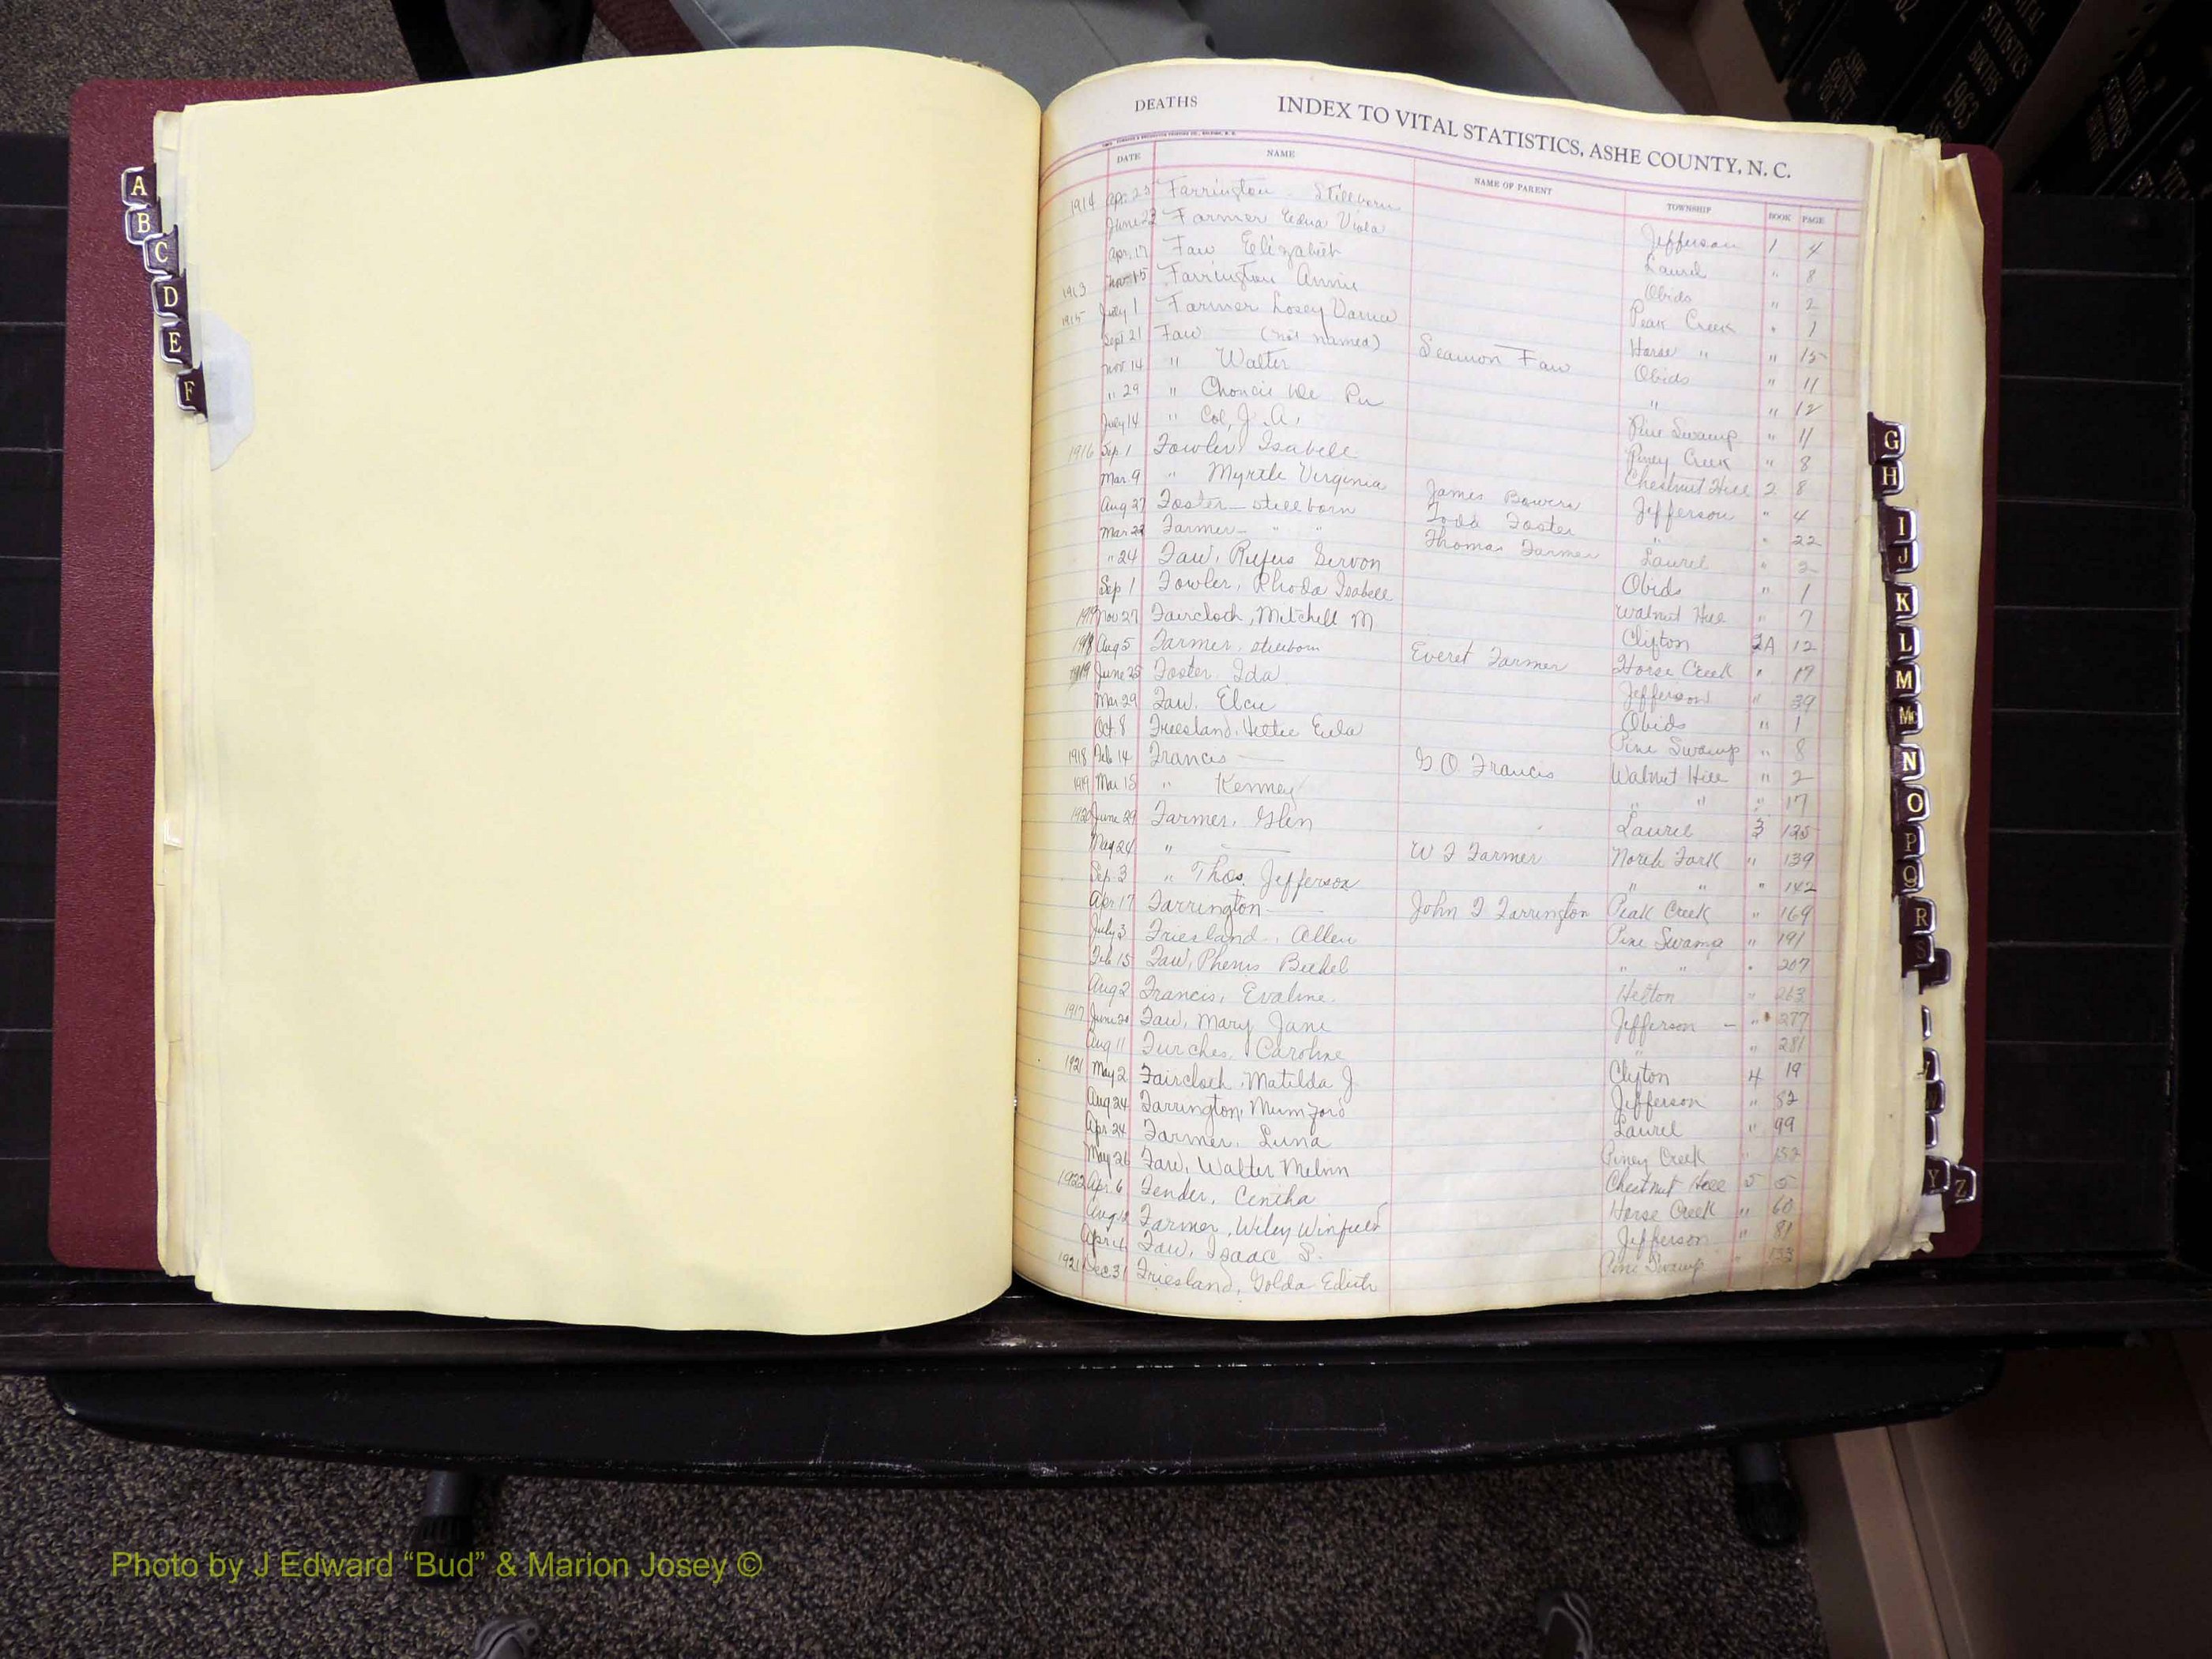 A
B
C
D
E
F
DEATHS INDEX TO VITAL STATISTICS, ASHE COUNTY, N. C.
DATE NAME NAME OF PARENT TOWNSHIP BOOK PAGE
1914 Apr. 25 Farrington Stillborn Jefferson 1 4
June 23 Farmer Edna Viola Laurel " 8
Apr. 17 Faw Elizabeth Obids " 2
1913 Nov. 15 Farrington Annie Peak Creek " 1
1915 July 1 Farmer Losey Horse " " 15
Sept 21 Faw (not named) Seamon Faw Obids " 11
Nov. 14 " Walter " " 12
" 29 " Pine Swamp " 11
July 14 " Col. J. A. Piney Creek " 8
1916 Sep. 1 Fowler, Isabell Chestnut Hill 2 8
Mar. 9 " Myrtle Virginia James Bowers Jefferson " 4
Aug 27 Foster - stillborn Foster " " 22
Mar 22 Farmer - " " Thomas Farmer Laurel " 2
" 24 Faw, Rufus Obids " 1
Sep 1 Fowler, Rhoda Isabell Walnut Hill " 7
Nov 27 Faircloth, Mitchell M Clifton 2A 12
1918 Aug 5 Farmer, stillborn Everet Farmer Horse Creek " 17
1919 June 25 Foster, Ida Jefferson " 39
Mar 29 Faw, Obids " 1
Oct. 8 Freesland, Hettie Eula Pine Swamp " 8
1918 Feb 14 Francis — G O Francis Walnut Hill " 2
1919 Mar 15 " Kenney " " " 17
1920 June 29 Farmer, Glen Laurel 3 125
May 24 " — W F Farmer North Fork " 139
Sep. 3 " Thos. Jefferson " " " 142
Apr 17 Farrington — John F Farrington Peak Creek " 169
July 3 Friesland, Allen Pine Swamp " 191
Feb 15 Faw, " " " 207
Aug 2 Francis, Evaline Helton " 263
1917 June 20 Faw, Mary Jane Jefferson - " 277
Aug 11 Furches, Caroline " " 281
1921 May 2 Faircloth, Matilda J. Clifton 4 19
Aug 24 Farrington, Mumford Jefferson " 52
Apr. 24 Farmer, Luna Laurel " 99
May 26 Faw, Walter Melvin Piney Creek " 152
1922 Apr. 6 Fender, Chestnut Hill 5 5
Aug 12 Farmer, Wiley Winfield Horse Creek " 60
Apr 4 Faw, Isaac S. Jefferson " 81
1921 Dec 31 Friesland, Golda Edith Pine Swamp " 133
G
H
I
J
K
L
M
Mc
N
O
P
Q
R
S
W
Y
Z
VITAL STATISTICS BIRTHS 1963
Photo by J Edward “Bud” & Marion Josey ©